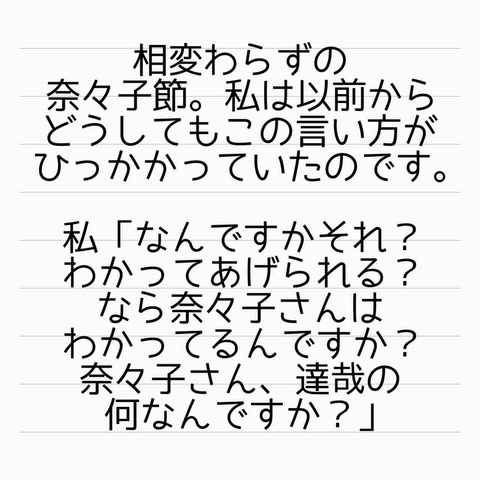 相変わらずの
奈々子節。私は以前から
どうしてもこの言い方が
ひっかかっていたのです。
私「なんですかそれ？
わかってあげられる？
なら奈々子さんは
わかってるんですか？
奈々子さん、達哉の
何なんですか？」